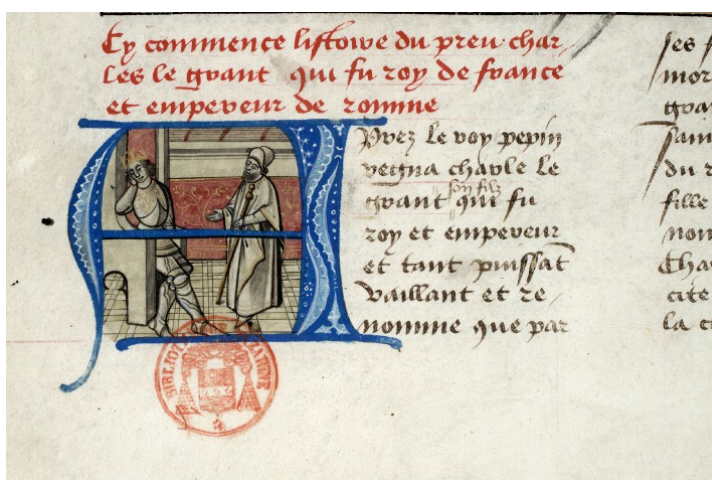 Cy commence listoire du preu char-
les le grant qui fu roy de france
et empereur de romme
APrez le roy pepin
regna charle le
son filz
grant qui fu
roy et empereur
et tant puissāt
vaillant et re-
nomme que par
ses
du
fille
cite
la